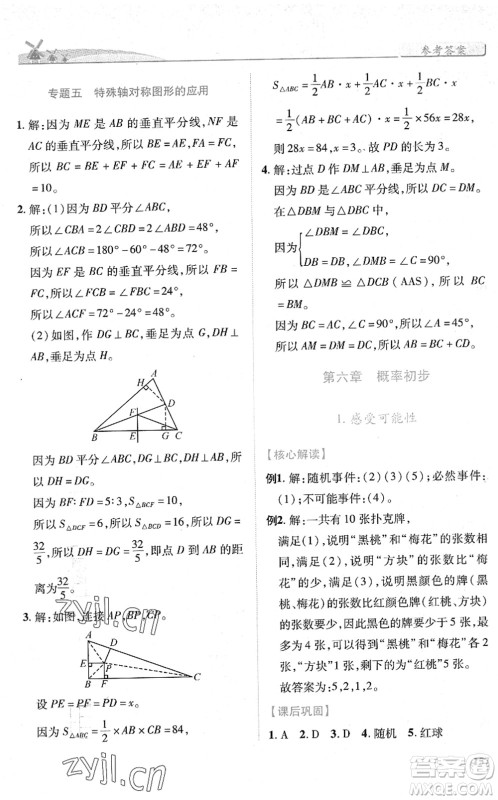 参考答案
专题五 特殊轴对称图形的应用
1. 解:因为 ME 是 AB 的垂直平分线,NF 是
AC 的垂直平分线,所以 BE=AE,FA=FC.
所以 BC = BE + EF + FC = EA + EF + AF
=10.
2. 解:(1)因为 BD 平分∠ABC,
所以∠CBA=2∠CBD=48°,
所以∠ACB=180°-60°-48°=72°.
因为 EF 是 BC 的垂直平分线,所以 FB=
FC,所以∠FBC=∠FCB=24°,
所以∠ACF=72°-24°=48°.
(2)如图,作 DG⊥BC 于 G,DH⊥AB 于
H,
A
H
D
F
B
E
G
C
因为 BD 平分∠ABC,所以 DH=DG.
因为 BD:FD=
5:3,所以 S△BCF:S△DCF=
32/5,所以 DH=DG=32/5,所以 D 到 AB 的距
离为32/5.
3. 解:如图,连接 AP,BP,CP.
A
D
E
P
B
F
C
设 PE=PF=PD=x,
因为 S△ABC=1/2×AB×CB=84,
S△ABC=1/2AB·x+1/2AC·x+1/2BC·x=
1/2(AB+BC+AC)·x=1/2×56x=28x,
则 28x=84,x=3. 故 PD 的长为 3.
4. 解:过点 D 作 DM⊥AB,垂足为 M.
在△DBM 与△DBC 中,
因为{∠DMB=∠C(=90°),
∠DBM=∠DBC,
BD=BD,
所以△DBM≌△DBC(AAS),
所以 BM=BC,DM=CD,
因为 AC=BC,∠C=90°,所以∠A=45°,
所以 AM=DM,所以 AM=CD.
所以 AB=AM+BM=BC+CD.
第六章 概率初步
1. 感受可能性
【核心解读】
例1. 解:随机事件:(2)(3)(5);必然事件:
(1)(4).
例2. 解:一共有 10 张扑克牌,
满足(1),说明“黑桃”和“梅花”的张数相
同,满足(2),说明“方块”的张数比“梅
花”的要少,满足(3),说明黑颜色的牌(黑
桃和梅花)的张数比红颜色的牌(红桃和
方块)的张数要多,所以黑颜色的牌至少
为 4 张,所以“黑桃”和“梅花”各 2
张,“方块”1 张,剩下的为“红桃”5 张.
故答案为:5,2,1,2.
【课后巩固】
1. A 2. D 3. D 4. 随机 5. 红球
zyjl.cn
zyjl.cn